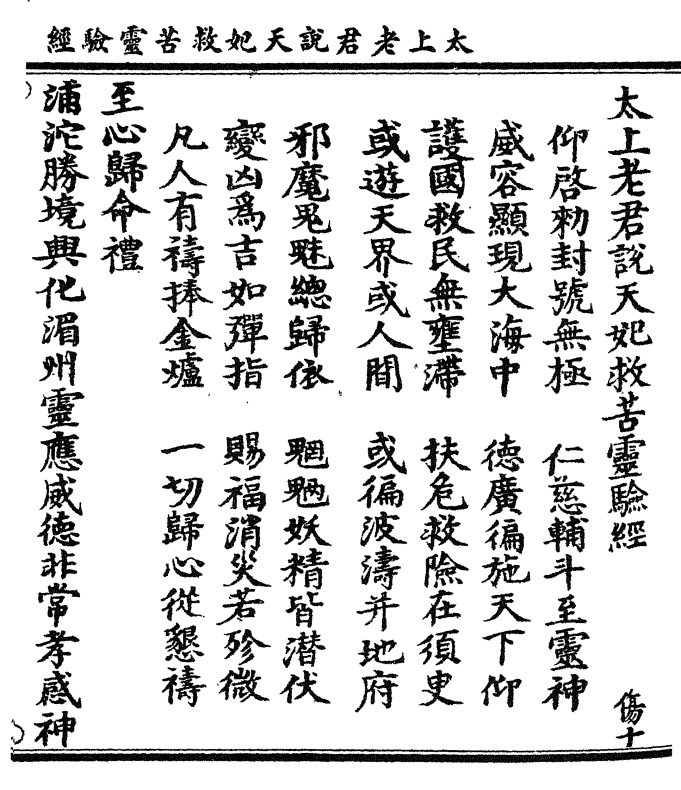 太上老君說天妃救苦靈驗經
太上老君說天妃救苦靈驗經 傷十
仰啓勑封號無極 仁慈輔斗至靈神
威容顯現大海中 德廣徧施天下仰
護國救民無壅滯 扶危救險在須臾
或遊天界或人間 或徧波濤并地府
邪魔鬼魅總歸依 魍魎妖精皆潛伏
變凶為吉如彈指 賜福消災若殄微
凡人有禱捧金爐 一切歸心從懇禱
至心歸命禮
浦沱勝境興化湄州靈應威德非常孝感神